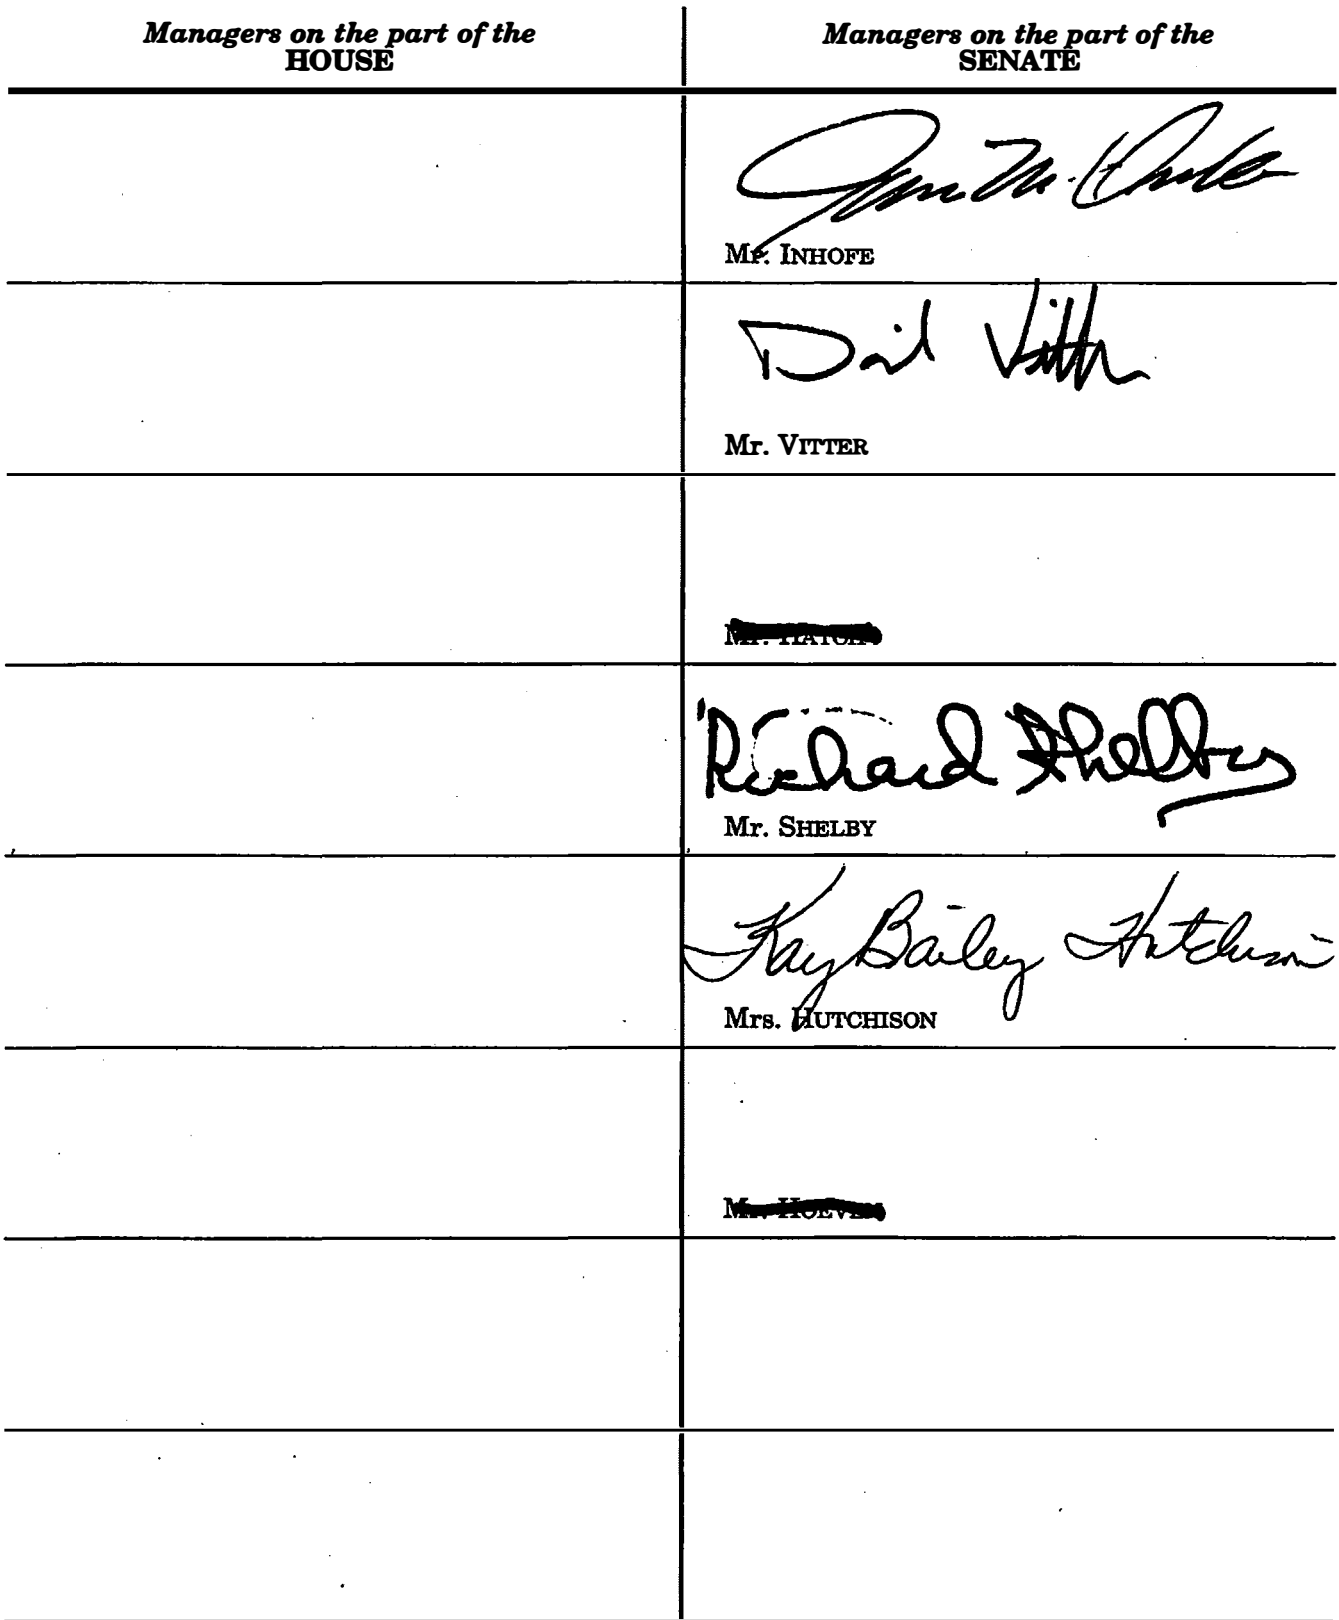 Managers on the part of the
HOUSE
Managers on the part of the
SENATE
James M. Inhofe
Mr. INHOFE
David Vitter
Mr. VITTER
Mr. HATCH
Richard Shelby
Mr. SHELBY
Kay Bailey Hutchison
Mrs. HUTCHISON
Mr. HOEVEN